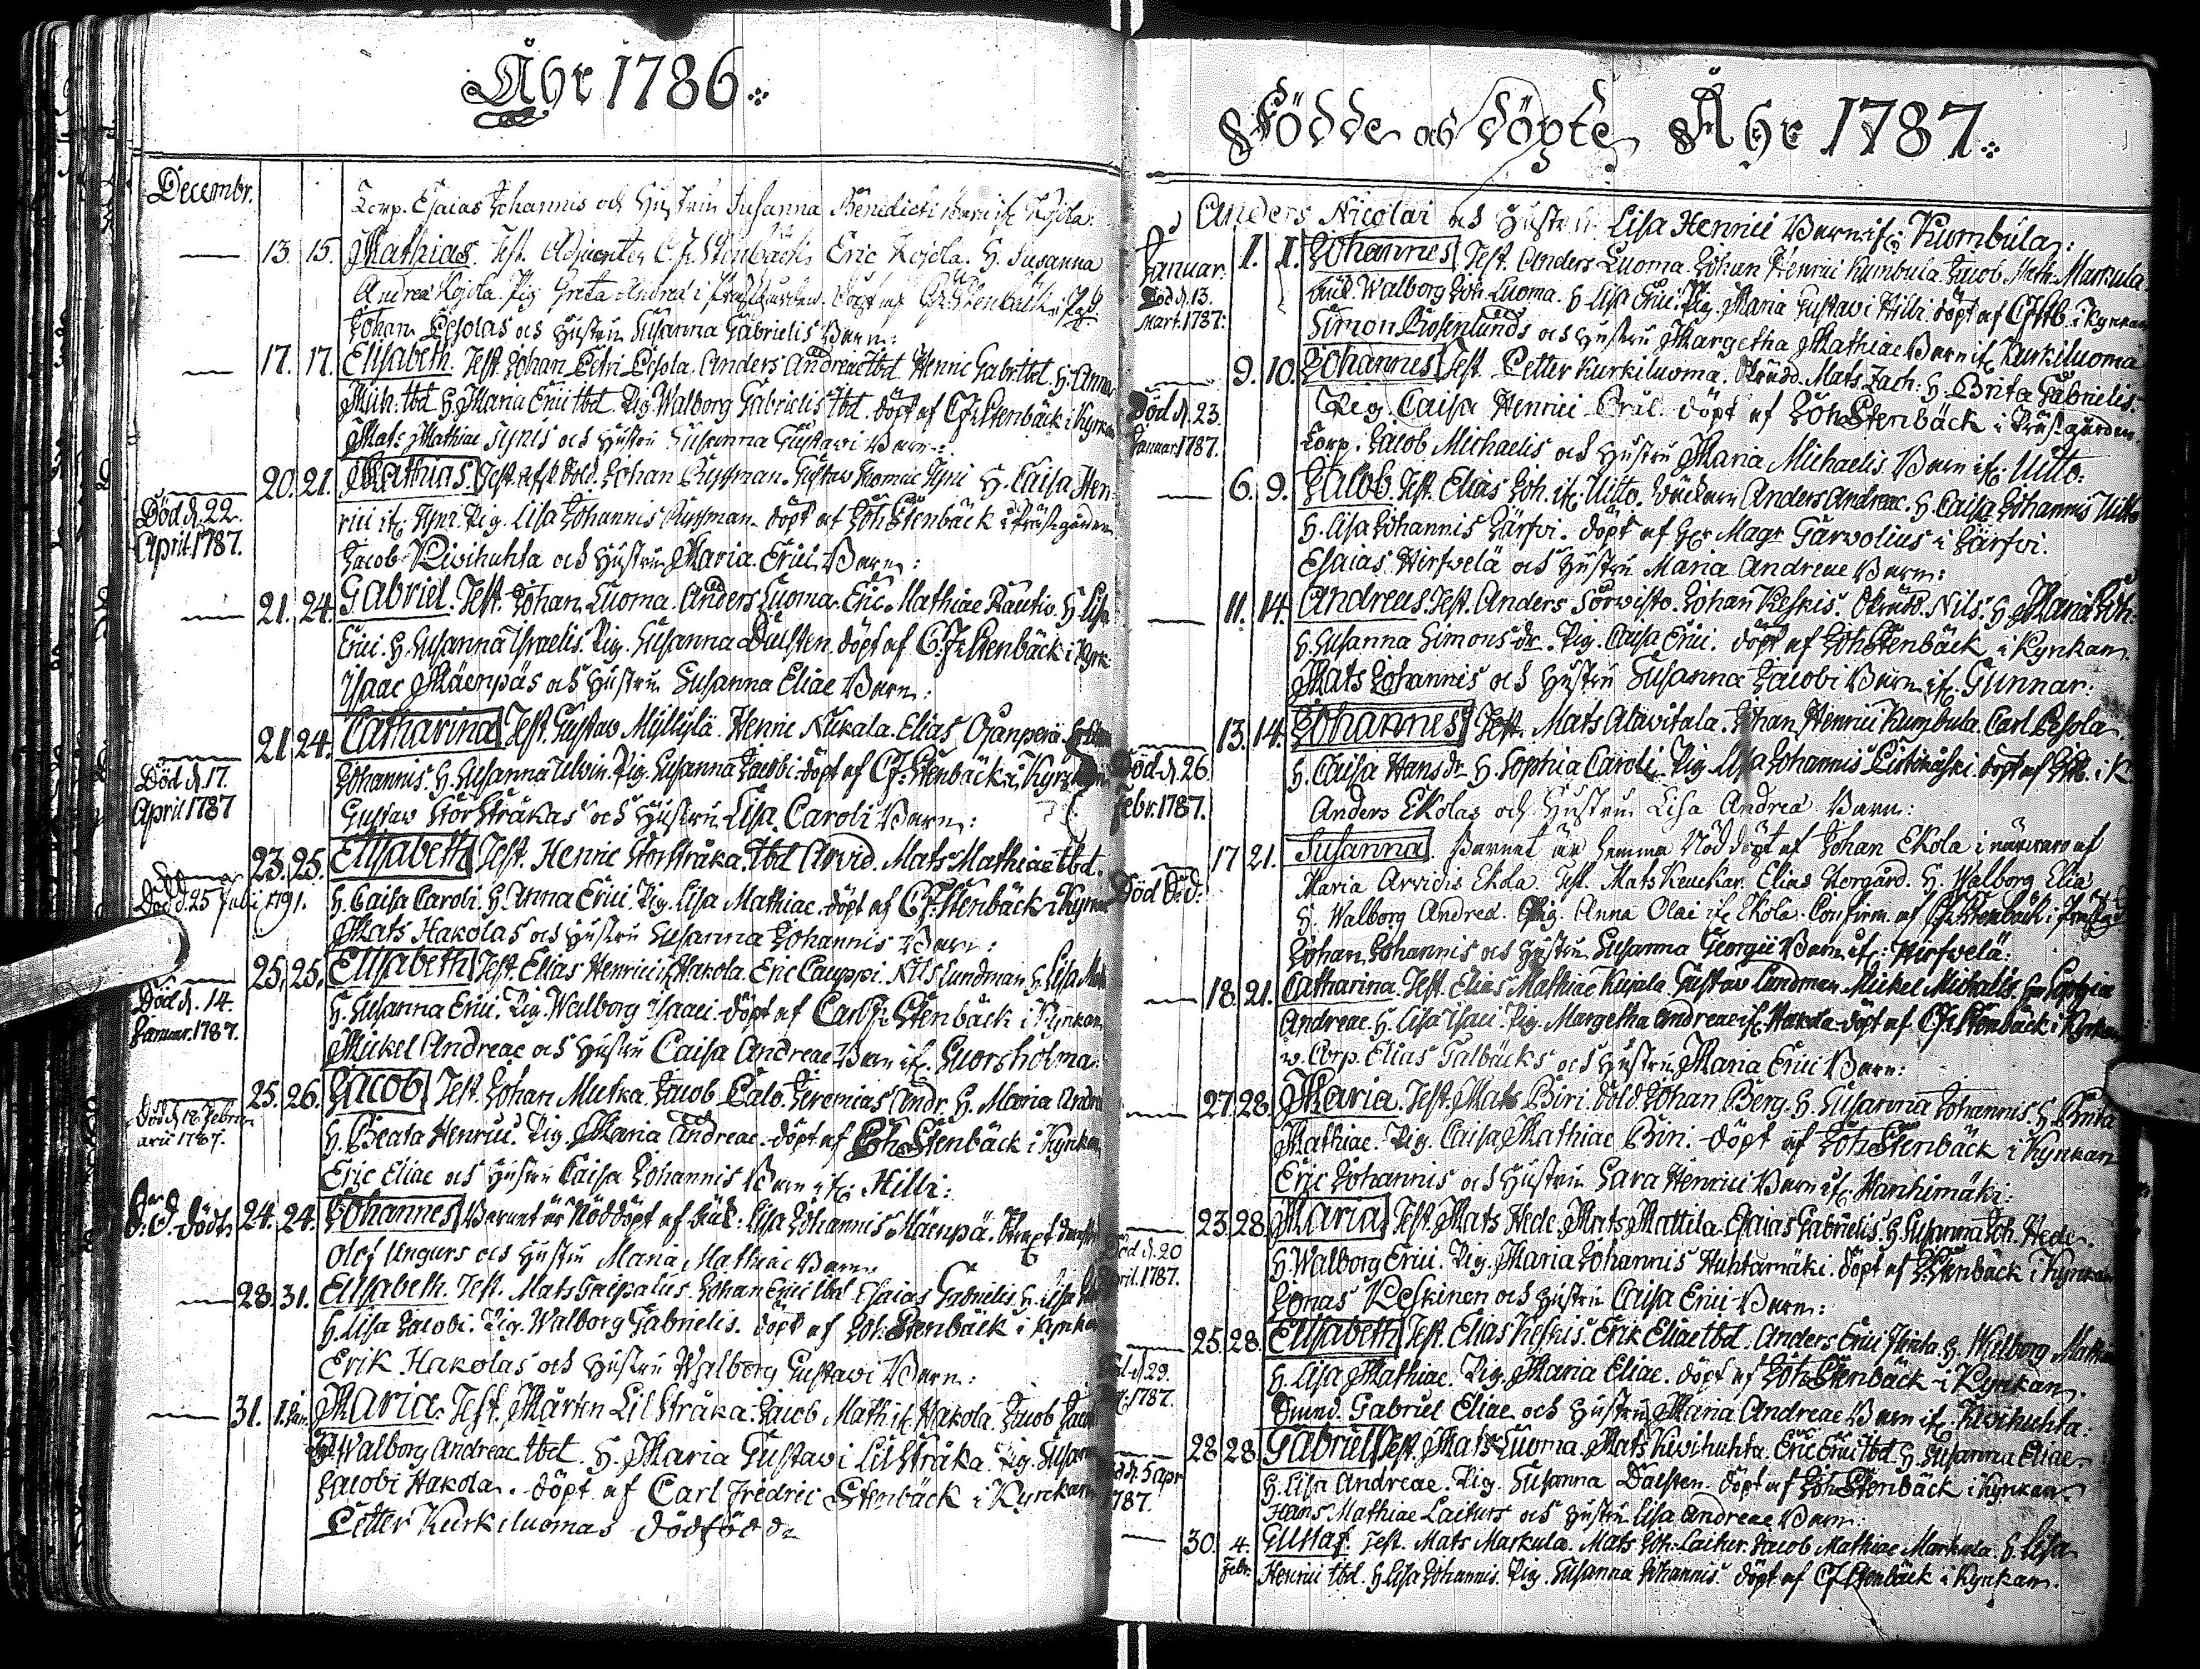 Åhr 1786
Decembr.
Corp. Esaias Johannis och Hustru Susanna Benedicti Barn if. Kojola:
13. 15. Mathias. Test. Adjuncten C. F. Stenbäck, Eric Kojola. H. Susanna
Andreæ Kojola. Pig. Greta Andreæ i Prästgården. döpt af C. F. Stenbäck i Pgd.
Johan Pesolas och Hustru Susanna Gabrielis Barn:
17. 17. Elisabeth. Test. Johan Petri Pesola. Anders Andreæ ibd. Henric Gabr. ibd. H. Anna
Mich. ibd H. Maria Erici ibd. Pig. Walborg Gabrielis ibd. döpt af C. F. Stenbäck i Kyrkan
Mats Mathiæ Tynis och Hustru Susanna Gustavi Barn:
20. 21. Mathias. Test. Johan Russman. Gustav Thomæ Tyni H. Caisa Hen-
Död d. 22.
April 1787.
rici if. Tyni. Pig. Lisa Johannis Russman. döpt af Joh. Stenbäck i Prästgården
Jacob Kivihuhta och Hustru Maria Erici Barn:
21. 24. Gabriel. Test. Johan Luoma. Anders Luoma. Eric Mathiæ Rautio. H. Lisa
Erici. H. Susanna Israelis. Pig. Susanna Dalsten. döpt af C. F. Stenbäck i Kyrk
Isaac Mäenpäs och Hustru Susanna Eliæ Barn:
21 24. Catharina Test. Gustav Myllylä. Henric Nukala. Elias Ojanperä.
Död d. 17.
April 1787
Johannis. H. Susanna Ulvin. Pig. Susanna Jacobi. döpt af C. F. Stenbäck i Kyrkan
Gustav Storstråkas och Hustru Lisa Caroli Barn:
23. 25. Elisabeth Test. Henric Storstråka. ibd Arvid. Mats Mathiæ ibd.
Död d. 25 Juli 1791.
H. Caisa Caroli. H. Anna Erici. Pig. Lisa Mathiæ. döpt af C. F. Stenbäck i Kyrkan
Mats Hakolas och Hustru Susanna Johannis Barn:
25. 25. Elisabeth Test. Elias Henrici if. Hakola. Eric Cauppi. Nils Lundman. H. Lisa
Död d. 14.
Januar. 1787.
H. Susanna Erici. Pig. Walborg Isaaci. döpt af Carl F. Stenbäck i Kyrkan
Mickel Andreæ och Hustru Caisa Andreæ Barn if. Luorsholma:
25. 26. Jacob Test. Johan Mutka. Jacob Palo. Jeremias Andr. H. Maria Andreæ
Död d. 18. Febru-
arii 1787.
H. Beata Henrici. Pig. Maria Andreæ. döpt af Joh. Stenbäck i Kyrkan
Eric Eliæ och Hustru Caisa Johannis Barn if. Hilli:
24. 24. Johannes Barnet är Nöddöpt af Lisa Johannis Mäenpä.
Olof Ungers och Hustru Maria Mathiæ Barn
28. 31. Elisabeth. Test. Johan Erici ibd Esaias Gabrielis. H. Lisa
H. Lisa Jacobi. Pig. Walborg Gabrielis. döpt af Joh. Stenbäck i Kyrkan
Erik Hakolas och Hustru Walborg Gustavi Barn:
31. 1. Jan. Maria. Test. Mårten Lillstråka. Jacob Math. if. Hakola. Jacob
H. Walborg Andreæ ibd. H. Maria Gustavi Lillstråka. Pig. Susanna
Jacobi Hakola. döpt af Carl Fredric Stenbäck i Kyrkan
Petter Kurkiluomas dödfödde
Födde och döpte Åhr 1787
Anders Nicolai och Hustru Lisa Henrici Barn if. Kumbula:
Januar. 1. 1. Johannes Test. Anders Luoma. Johan Henrici Kumbula. Jacob Math. Markula
Död d. 13.
Mart. 1787:
Walborg Joh. Luoma. H. Lisa Erici. Pig. Maria Gustavi Hilli. döpt af C. F. Stb. i Kyrkan
Simon Rosenlunds och Hustru Margetha Mathiæ Barn if. Kurkiluoma
9. 10. Johannes Test. Petter Kurkiluoma. Mats Zach. H. Brita Gabrielis.
Död d. 23.
Januar. 1787.
Pig. Caisa Henrici döpt af Joh. Stenbäck i Prästgården
Corp. Jacob Michaelis och Hustru Maria Michaelis Barn if. Uitto:
6. 9. Jacob. Test. Elias Joh. if. Uitto. Anders Andreæ. H. Caisa Johannis Uitto
H. Lisa Johannis Järfvi. döpt af Hr Mag. Garvolius i Järfvi.
Esaias Hirfvelä och Hustru Maria Andreæ Barn:
11. 14. Andreas. Test. Anders Sorvisto. Johan Keskis. Nils. H. Maria Joh.
H. Susanna Simonsdr. Pig. Caisa Erici. döpt af Joh. Stenbäck i Kyrkan.
Mats Johannis och Hustru Susanna Jacobi Barn if. Gunnar:
13. 14. Johannes Test. Mats Alavitala. Johan Henrici Kumbula. Carl Pesola.
Död d. 26
Febr. 1787.
H. Caisa Hansdr. H. Sophia Caroli. Pig. Lisa Johannis döpt af i K
Anders Ekolas och Hustru Lisa Andreæ Barn:
17 21. Susanna. Barnet är hemma Nöddöpt af Johan Ekola i närvaro af
Maria Arvidis Ekola. Test. Mats Keuckar. Elias Norgård. H. Walborg Eliæ
H. Walborg Andreæ. Pig. Anna Olai if. Ekola. Confirm. af C. F. Stenbäck i Prästg.
Johan Johannis och Hustru Susanna Georgii Barn if. Hirfvelä:
18. 21. Catharina. Test. Elias Mathiæ Kujala. Gustav Lundman. Mickel Michaelis. H. Sophia
Andreæ. H. Lisa Isaci. Pig. Margetha Andreæ if. Hakola. döpt af C. F. Stenbäck i Kyrkan
v. Corp. Elias Galbäcks och Hustru Maria Erici Barn:
27. 28. Maria. Test. Mats Biri. Sold. Johan Berg. H. Susanna Johannis. H. Brita
Mathiæ. Pig. Caisa Mathiæ Biri. döpt af Joh. Stenbäck i Kyrkan
Eric Johannis och Hustru Sara Henrici Barn if. Hanhimäki:
23. 28. Maria Test. Mats Hede. Mats Mattila. Esaias Gabrielis. H. Susanna Joh. Hede.
Död d. 20
April. 1787.
H. Walborg Erici. Pig. Maria Johannis Huhtamäki. döpt af Stenbäck i Kyrkan
Jonas Keskinen och Hustru Caisa Erici Barn:
25. 28. Elisabeth Test. Elias Keskis. Erik Eliæ ibd. Anders Erici H. Walborg
d. 29.
1787.
H. Lisa Mathiæ. Pig. Maria Eliæ. döpt af Joh. Stenbäck i Kyrkan.
Gabriel Eliæ och Hustru Maria Andreæ Barn if. Kivihuhta:
28 28. Gabriel Test. Mats Luoma. Mats Kivihuhta. Eric Erici ibd. H. Susanna Eliæ.
d. 5 apr
1787.
H. Lisa Andreæ. Pig. Susanna Dalsten. döpt af Joh. Stenbäck i Kyrkan.
Hans Mathiæ Laiturs och Hustru Lisa Andreæ Barn:
30. 4. Febr. Gustaf. Test. Mats Markula. Mats Joh. Laitur. Jacob Mathiæ Markula. H. Lisa
Henrici ibd. H. Lisa Johannis. Pig. Susanna Johannis. döpt af C. F. Stenbäck i Kyrkan.